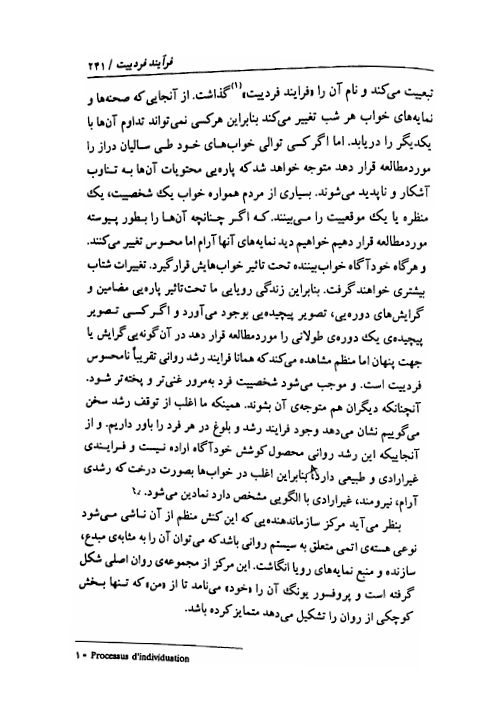 فرآیند فردییت / ۲۴۱
تبعییت می‌کند و نام آن را «فرایند فردییت»(۱) گذاشت. از آنجایی‌که صحنه‌ها و
نمایه‌های خواب هر شب تغییر می‌کند بنابراین هرکسی نمی‌تواند تداوم آن‌ها با
یکدیگر را دریابد. اما اگر کسی توالی خواب‌های خود طی سالیان دراز را
مورد‌مطالعه قرار دهد متوجه خواهد شد که پاره‌یی محتویات آن‌ها به تناوب
آشکار و ناپدید می‌شوند. بسیاری از مردم همواره خواب یك شخصیت، یك
منظره یا یك موقعیت را می‌بینند. که اگر چنانچه آن‌ها را بطور پیوسته
موردمطالعه قرار دهیم خواهیم دید نمایه‌های آنها آرام اما محسوس تغییر می‌کنند.
و هرگاه خودآگاه خواب‌بیننده تحت تاثیر خواب‌هایش قرار گیرد. تغییرات شتاب
بیشتری خواهند گرفت. بنابراین زندگی رویایی ما تحت‌تاثیر پاره‌یی مضامین و
گرایش‌های دوره‌یی، تصویر پیچیده‌یی بوجود می‌آورد و اگر کسی تصویر
پیچیده‌ی یك دوره‌ی طولانی را موردمطالعه قرار دهد در آن گونه‌یی گرایش یا
جهت پنهان اما منظم مشاهده می‌کند که همانا فرایند رشد روانی تقریباً نامحسوس
فردییت است. و موجب می‌شود شخصییت فرد به‌مرور غنی‌تر و پخته‌تر شود.
آنچنانکه دیگران هم متوجه‌ی آن بشوند. همینکه ما اغلب از توقف رشد سخن
می‌گوییم نشان می‌دهد وجود فرایند رشد و بلوغ در هر فرد را باور داریم. و از
آنجاییکه این رشد روانی محصول کوشش خودآگاه اراده نیست و فرایندی
غیرارادی و طبیعی دارد، بنابراین اغلب در خواب‌ها بصورت درخت که رشدی
آرام، نیرومند، غیرارادی با الگویی مشخص دارد نمادین می‌شود.
بنظر می‌آید مرکز سازماندهنده‌یی که این کنش منظم از آن ناشی می‌شود
نوعی هسته‌ی اتمی متعلق به سیستم روانی باشد که می‌توان آن را به مثابه‌ی مبدع،
سازنده و منبع نمایه‌های رویا انگاشت. این مرکز از مجموعه‌ی روان اصلی شکل
گرفته است و پروفسور یونگ آن را «خود» می‌نامد تا از «من» که تنها بخش
کوچکی از روان را تشکیل می‌دهد متمایز کرده باشد.
۱ - Processus d'individuation